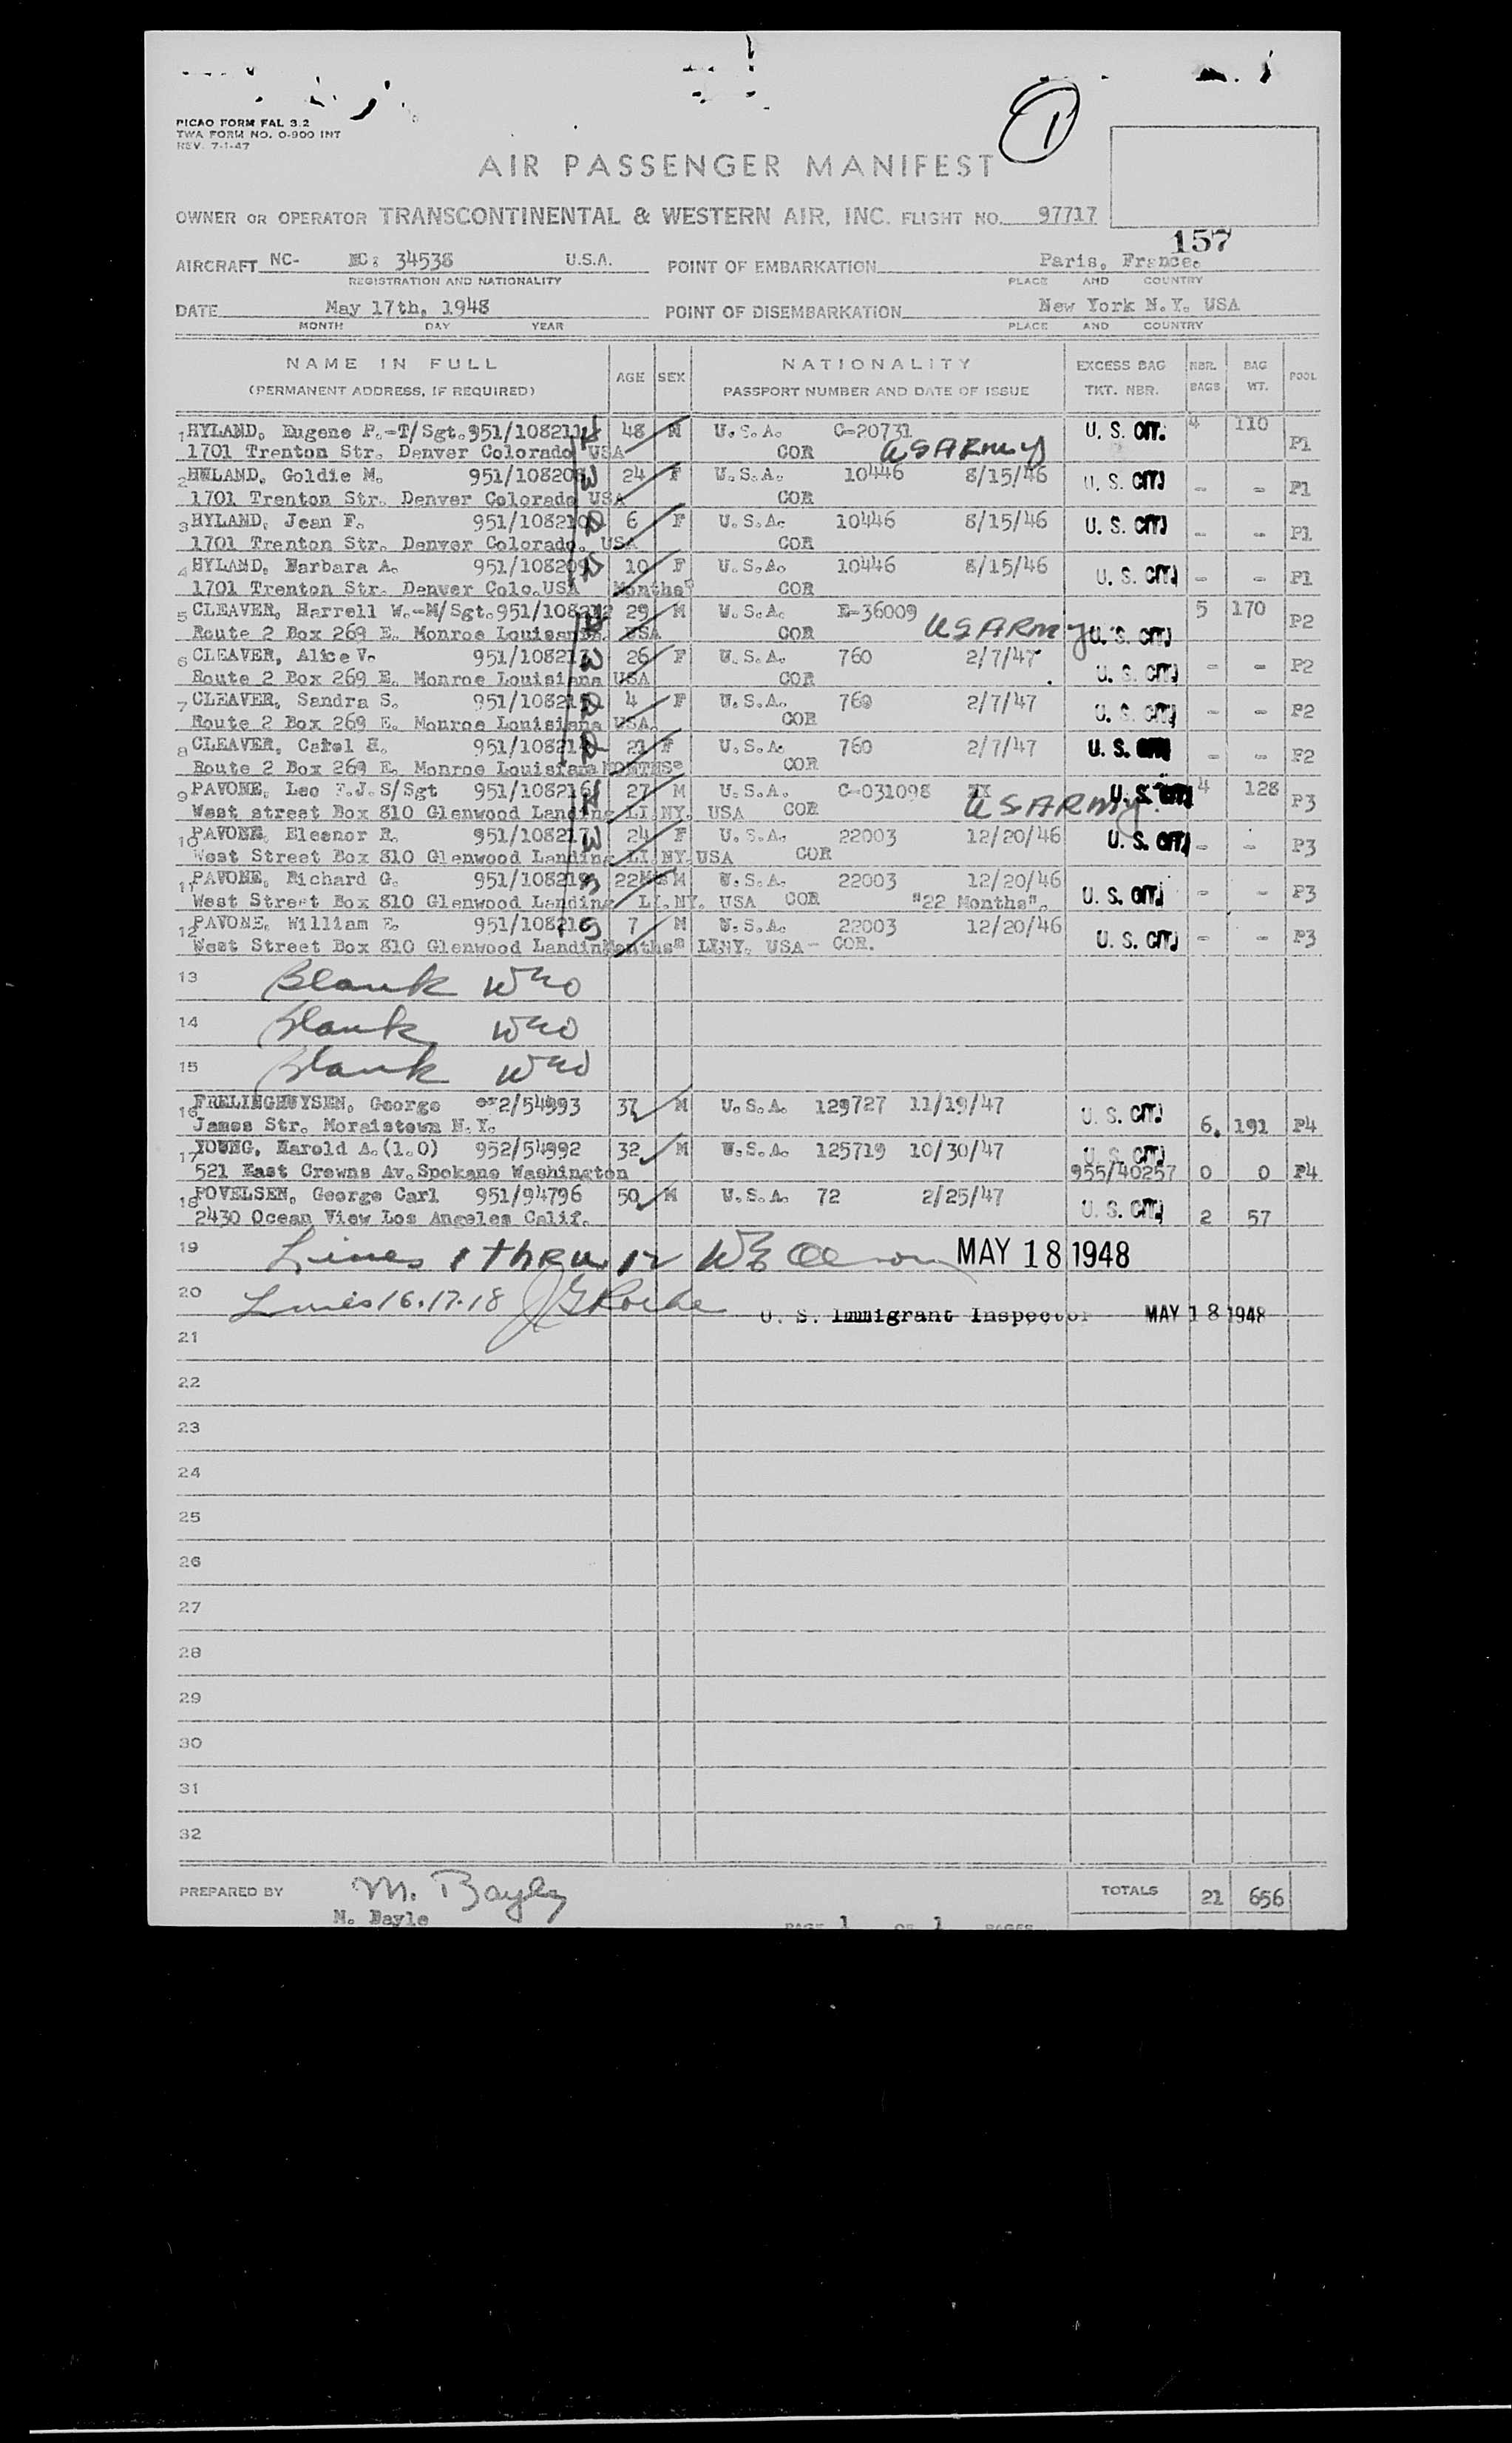 1
PICAO FORM FAL 3.2
TWA FORM NO. O-900 INT
REV. 7-1-47
AIR PASSENGER MANIFEST
OWNER OR OPERATOR TRANSCONTINENTAL & WESTERN AIR, INC. FLIGHT NO. 97717
157
AIRCRAFT NC- NC: 34538 U.S.A. POINT OF EMBARKATION Paris, France.
REGISTRATION AND NATIONALITY PLACE AND COUNTRY
DATE May 17th, 1948 POINT OF DISEMBARKATION New York N.Y. USA
MONTH DAY YEAR PLACE AND COUNTRY
NAME IN FULL AGE SEX NATIONALITY EXCESS BAG NBR. BAG POOL
(PERMANENT ADDRESS, IF REQUIRED) PASSPORT NUMBER AND DATE OF ISSUE TKT. NBR. BAGS WT.
1 HYLAND, Eugene P.-T/Sgt.951/108211 H 48 M U.S.A. C-20731 U. S. CIT. 4 110 P1
1701 Trenton Str. Denver Colorado USA COR US ARMY
2 HWLAND, Goldie M. 951/108208 W 24 F U.S.A. 10446 8/15/46 U. S. CIT. - - P1
1701 Trenton Str. Denver Colorado USA COR
3 HYLAND, Jean F. 951/108210 D 6 F U.S.A. 10446 8/15/46 U. S. CIT. - - P1
1701 Trenton Str. Denver Colorado. USA COR
4 HYLAND, Barbara A. 951/108209 D 10 F U.S.A. 10446 8/15/46 U. S. CIT. - - P1
1701 Trenton Str. Denver Colo.USA Months" COR
5 CLEAVER, Harrell W.-M/Sgt.951/108212 H 29 M U.S.A. E-36009 US ARMY U. S. CIT. 5 170 P2
Route 2 Box 269 E. Monroe Louisania. USA COR
6 CLEAVER, Alice V. 951/108213 W 26 F U.S.A. 760 2/7/47 U. S. CIT. - - P2
Route 2 Box 269 E. Monroe Louisiana USA COR
7 CLEAVER, Sandra S. 951/108215 D 4 F U.S.A. 760 2/7/47 U. S. CIT. - - P2
Route 2 Box 269 E. Monroe Louisiana USA. COR
8 CLEAVER, Carol E. 951/10821 D 21 F U.S.A. 760 2/7/47 U. S. CIT. - - P2
Route 2 Box 269 E. Monroe Louisiana MONTHS" COR
9 PAVONE, Leo F.J. S/Sgt 951/108216 H 27 M U.S.A. C-031098 XX U. S. CIT. 4 128 P3
West street Box 810 Glenwood Landing LI.NY. USA COR US ARMY
10 PAVONE, Eleanor R. 951/108217 W 24 F U.S.A. 22003 12/20/46 U. S. CIT. - - P3
West Street Box 810 Glenwood Landing LI.NY.USA COR
11 PAVONE, Richard G. 951/108219 S 22 M U.S.A. 22003 12/20/46 U. S. CIT. - - P3
West Street Box 810 Glenwood Landing LI.NY. USA COR "22 Months".
12 PAVONE, William E. 951/10821 S 7 M U.S.A. 22003 12/20/46 U. S. CIT. - - P3
West Street Box 810 Glenwood Landin Months" LINY. USA- COR.
13 Blank WEO
14 Blank WEO
15 Blank WEO
16 FRELINGHUYSEN, George 952/54993 37 M U.S.A. 129727 11/19/47 U. S. CIT. 6. 191 P4
James Str. Moraistown N.Y.
17 YOUNG, Harold A.(1.0) 952/54992 32 M U.S.A. 125719 10/30/47 U. S. CIT.
521 East Crowns Av.Spokane Washington 955/40257 0 0 P4
18 POVELSEN, George Carl 951/94796 50 M U.S.A. 72 2/25/47 U. S. CIT. 2 57
2430 Ocean View Los Angeles Calif.
19 Lines 1 thru 12 WE Olerson MAY 18 1948
20 Lines 16.17.18 U. S. Immigrant Inspector MAY 18 1948
21
22
23
24
25
26
27
28
29
30
31
32
PREPARED BY M. Bayle TOTALS 21 656
M. Bayle PAGE 1 OF 1 PAGES